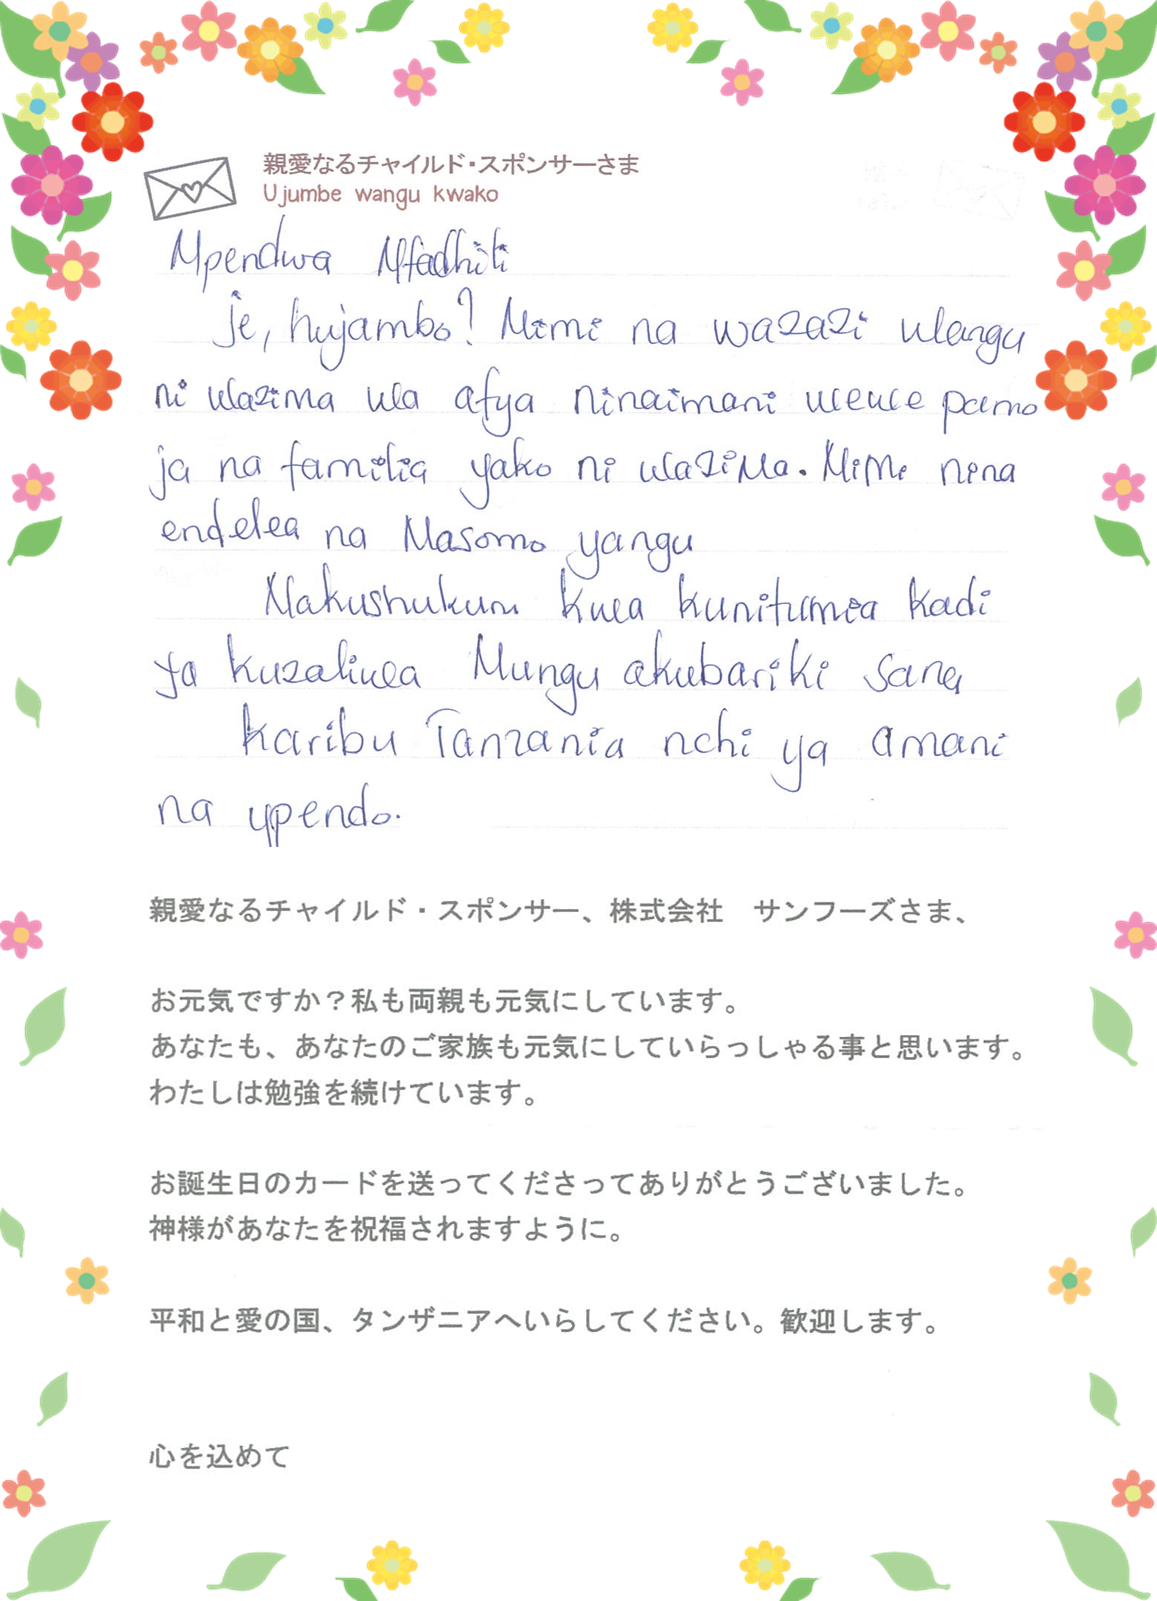 親愛なるチャイルド・スポンサーさま
Ujumbe wangu kwako
Mpendwa Mfadhili
Je, hujambo? Mimi na wazazi wangu
ni wazima wa afya ninaimani wewe pamo
ja na familia yako ni wazima. Mimi nina
endelea na Masomo yangu
Nakushukuru kwa kunitumia kadi
ya kuzaliwa Mungu akubariki sana
Karibu Tanzania nchi ya amani
na upendo.
親愛なるチャイルド・スポンサー、株式会社　サンフーズさま、
お元気ですか？私も両親も元気にしています。
あなたも、あなたのご家族も元気にしていらっしゃる事と思います。
わたしは勉強を続けています。
お誕生日のカードを送ってくださってありがとうございました。
神様があなたを祝福されますように。
平和と愛の国、タンザニアへいらしてください。歓迎します。
心を込めて